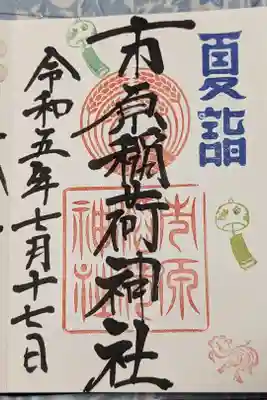 夏詣
市原稲荷神社
市原稲荷神社
令和五年七月十七日